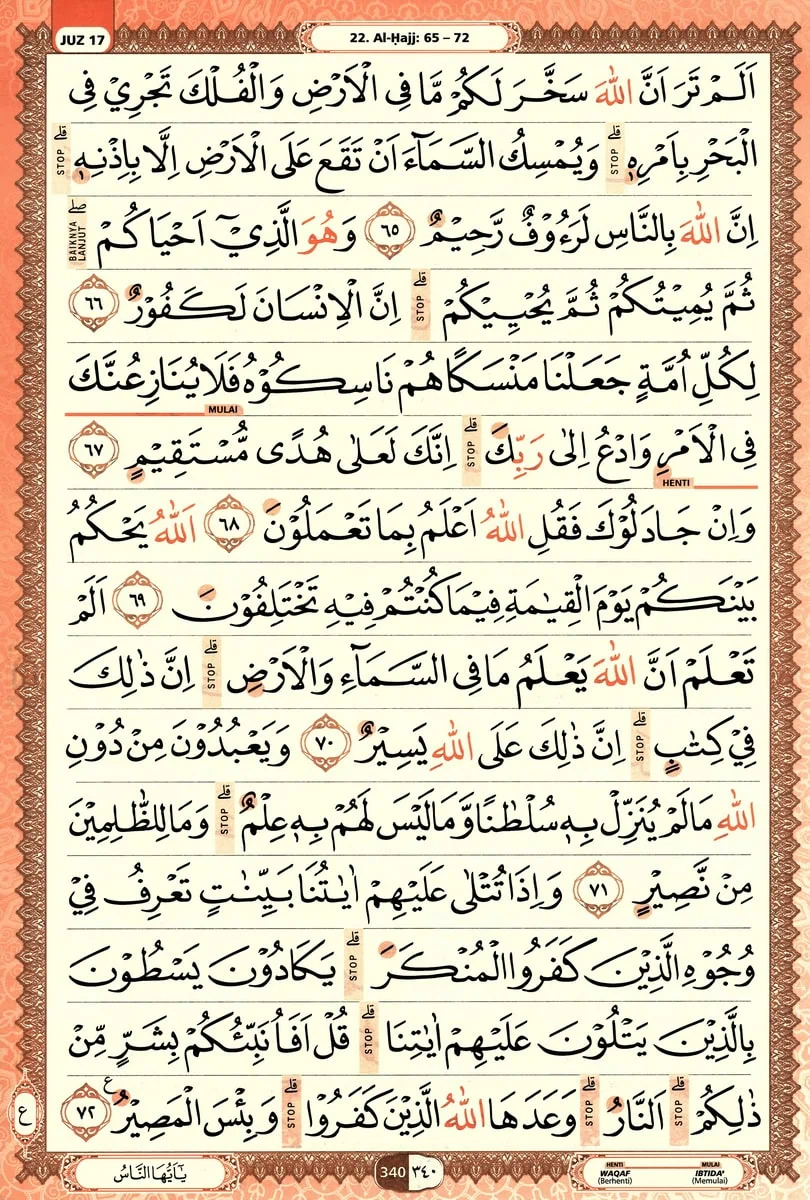 JUZ 17
22. Al-Ḥajj: 65 – 72
اَلَمْ تَرَ اَنَّ اللّٰهَ سَخَّرَ لَكُمْ مَّا فِى الْاَرْضِ وَالْفُلْكَ تَجْرِيْ فِى
الْبَحْرِ بِاَمْرِهٖ ۗ وَيُمْسِكُ السَّمَاۤءَ اَنْ تَقَعَ عَلَى الْاَرْضِ اِلَّا بِاِذْنِهٖ ۗ
STOP STOP
اِنَّ اللّٰهَ بِالنَّاسِ لَرَءُوْفٌ رَّحِيْمٌ ٦٥ وَهُوَ الَّذِيْٓ اَحْيَاكُمْ ۖ
BAIKNYA LANJUT
ثُمَّ يُمِيْتُكُمْ ثُمَّ يُحْيِيْكُمْ ۗ اِنَّ الْاِنْسَانَ لَكَفُوْرٌ ٦٦
STOP
لِكُلِّ اُمَّةٍ جَعَلْنَا مَنْسَكًا هُمْ نَاسِكُوْهُ فَلَا يُنَازِعُنَّكَ
MULAI
فِى الْاَمْرِ وَادْعُ اِلٰى رَبِّكَ ۗ اِنَّكَ لَعَلٰى هُدًى مُّسْتَقِيْمٍ ٦٧
STOP
HENTI
وَاِنْ جَادَلُوْكَ فَقُلِ اللّٰهُ اَعْلَمُ بِمَا تَعْمَلُوْنَ ٦٨ اَللّٰهُ يَحْكُمُ
بَيْنَكُمْ يَوْمَ الْقِيٰمَةِ فِيْمَا كُنْتُمْ فِيْهِ تَخْتَلِفُوْنَ ٦٩ اَلَمْ
تَعْلَمْ اَنَّ اللّٰهَ يَعْلَمُ مَا فِى السَّمَاۤءِ وَالْاَرْضِ ۗ اِنَّ ذٰلِكَ
STOP
فِيْ كِتٰبٍ ۗ اِنَّ ذٰلِكَ عَلَى اللّٰهِ يَسِيْرٌ ٧٠ وَيَعْبُدُوْنَ مِنْ دُوْنِ
STOP
اللّٰهِ مَا لَمْ يُنَزِّلْ بِهٖ سُلْطٰنًا وَّمَا لَيْسَ لَهُمْ بِهٖ عِلْمٌ ۗ وَمَا لِلظّٰلِمِيْنَ
STOP
مِنْ نَّصِيْرٍ ٧١ وَاِذَا تُتْلٰى عَلَيْهِمْ اٰيٰتُنَا بَيِّنٰتٍ تَعْرِفُ فِيْ
وُجُوْهِ الَّذِيْنَ كَفَرُوا الْمُنْكَرَ ۗ يَكَادُوْنَ يَسْطُوْنَ
STOP
بِالَّذِيْنَ يَتْلُوْنَ عَلَيْهِمْ اٰيٰتِنَا ۗ قُلْ اَفَاُنَبِّئُكُمْ بِشَرٍّ مِّنْ
STOP
ذٰلِكُمْ ۗ اَلنَّارُ ۗ وَعَدَهَا اللّٰهُ الَّذِيْنَ كَفَرُوْا ۗ وَبِئْسَ الْمَصِيْرُ ࣖ ٧٢
STOP STOP STOP
ع
يٰٓاَيُّهَا النَّاسُ
340 ٣٤٠
HENTI WAQAF (Berhenti)
MULAI IBTIDA' (Memulai)